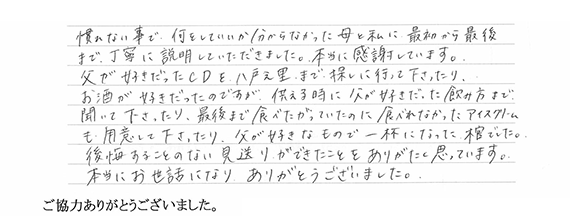 慣れない事で、何をしていいか分からなかった母と私に、最初から最後
まで、丁寧に説明していただきました。本当に感謝しています。
父が好きだったCDを、八戸え里まで探しに行って下さったり、
お酒が好きだったのですが、供える時に父が好きだった飲み方まで
聞いて下さったり、最後まで食べたがっていたのに食べれなかったアイスクリーム
も用意して下さったり、父が好きなもので一杯になった棺でした。
後悔することのない見送りができたことをありがたく思っています。
本当にお世話になり、ありがとうございました。
ご協力ありがとうございました。